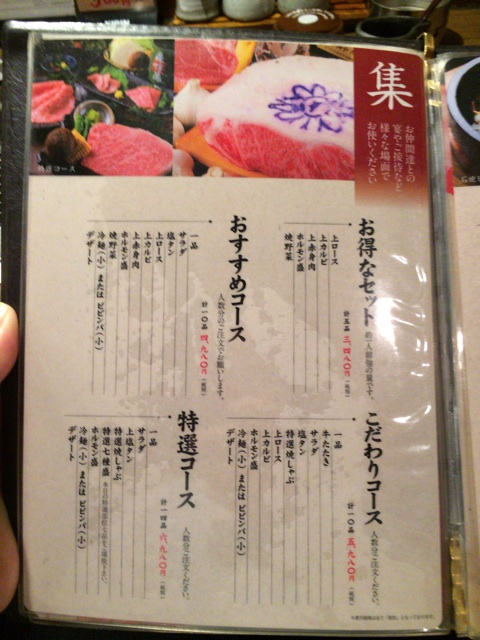 集
お仲間達との
宴やご接待など
様々な場面で
お使いください
特選コース
お得なセット
約二人前強の量です。
計五品 三、四八〇円(税別)
上ロース
上カルビ
上赤身肉
ホルモン盛
焼野菜
おすすめコース
人数分のご注文でお願いします。
計一〇品 四、九八〇円(税別)
一品
サラダ
塩タン
上ロース
上カルビ
上赤身肉
ホルモン盛
焼野菜
冷麺(小)または ビビンバ(小)
デザート
こだわりコース
人数分ご注文ください。
計一〇品 五、九八〇円(税別)
一品
牛たたき
サラダ
塩タン
特選焼しゃぶ
上ロース
上カルビ
ホルモン盛
冷麺(小)または ビビンバ(小)
デザート
特選コース
人数分ご注文ください。
計一四品 六、九八〇円(税別)
一品
サラダ
上塩タン
特選焼しゃぶ
特選七種盛
ホルモン盛
冷麺(小)または ビビンバ(小)
デザート